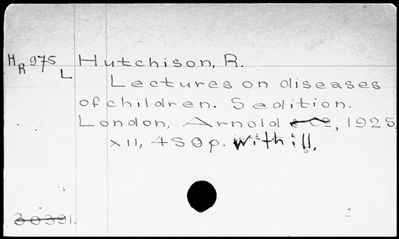 HR 975 L Hutchison, R.
Lectures on diseases
of children. 5 edition.
London, Arnold & Co, 1925,
XII, 450 p. with ill.
30391.